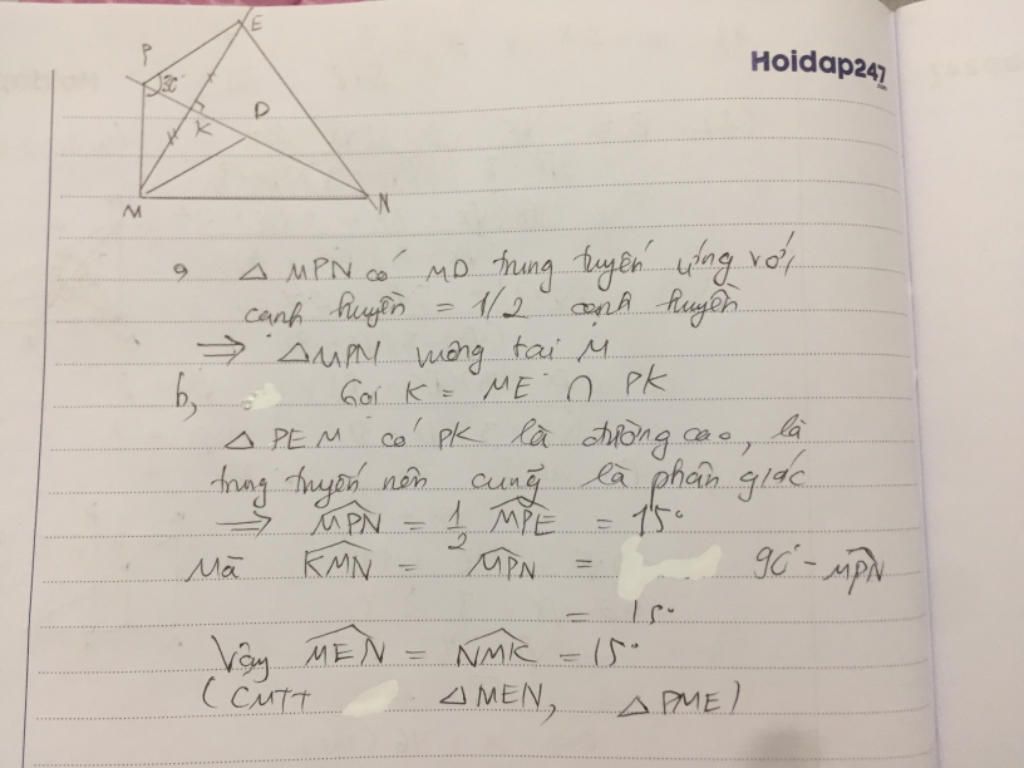 E
P
30°
Hoidap247
.com
D
K
M
N
a, △ MPN có MD trung tuyến ứng với
cạnh huyền = 1/2 cạnh huyền
⇒ △MPN vuông tại M
b, Gọi K = ME ∩ PK
△ PEM có PK là đường cao, là
trung tuyến nên cũng là phân giác
⇒ MPN = 1/2 MPE = 15°
Mà KMN = MPN = 90° - MPN
= 15°
Vậy MEN = NMK = 15°
(CMTT △MEN, △PME)